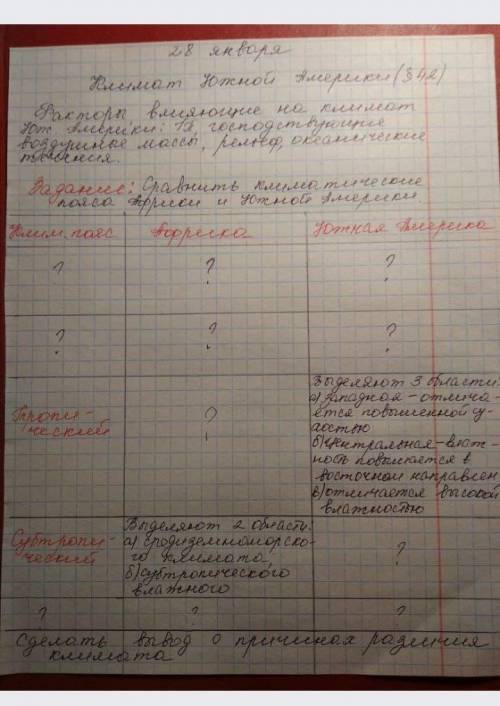 28 января
Климат Южной Америки (§42)
Факторы влияющие на климат
Юж. Америки: господствующие
воздушные массы, рельеф, океанические
течения.
Задание: Сравнить климатические
пояса Африки и Южной Америки.
Клим. пояс Африка Южная Америка
? ? ?
? ? ?
Тропи-
ческий
?
Выделяют 3 области:
а) западная - отлича-
ется повышенной су-
хостью
б) центральная - влаж-
ность повышается в
восточном направлен.
в) отличается высокой
влажностью
Субтропи-
ческий
Выделяют 2 области:
а) средиземноморско-
го климата,
б) субтропического
влажного
?
? ? ?
Сделать вывод о причинах различия
климата